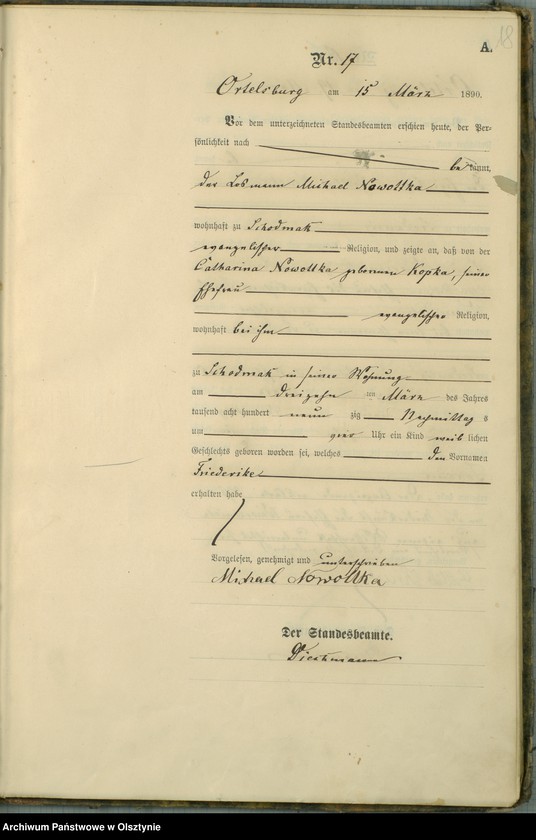 18
A.
Nr. 17
Ortelsburg am 15 März 1890.
Vor dem unterzeichneten Standesbeamten erschien heute, der Per-
sönlichkeit nach
bekannt,
der Losmann Michael Nowottka
wohnhaft zu Schodmak
evangelischer Religion, und zeigte an, daß von der
Catharina Nowottka geborenen Kopka, seiner
Ehefrau
evangelischer Religion,
wohnhaft bei ihm
zu Schodmak in seiner Wohnung
am dreizehn ten März des Jahres
tausend acht hundert neun zig Nachmittag s
um vier Uhr ein Kind weib lichen
Geschlechts geboren worden sei, welches den Vornamen
Friederike
erhalten habe
Vorgelesen, genehmigt und unterschrieben
Michael Nowottka
Der Standesbeamte.
Archiwum Państwowe w Olsztynie